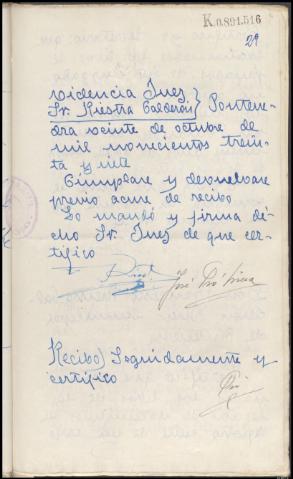 K.0.891.516
29
videncia Juez
Sr. Riestra Calderón } Ponteve-
dra veinte de octubre de
mil novecientos trein-
ta y siete
Cúmplase y devuélvase
previo acuse de recibo
Lo mandó y firma di-
cho Sr. Juez de que cer-
tifico
José
Recibo) Seguidamente y
certifico